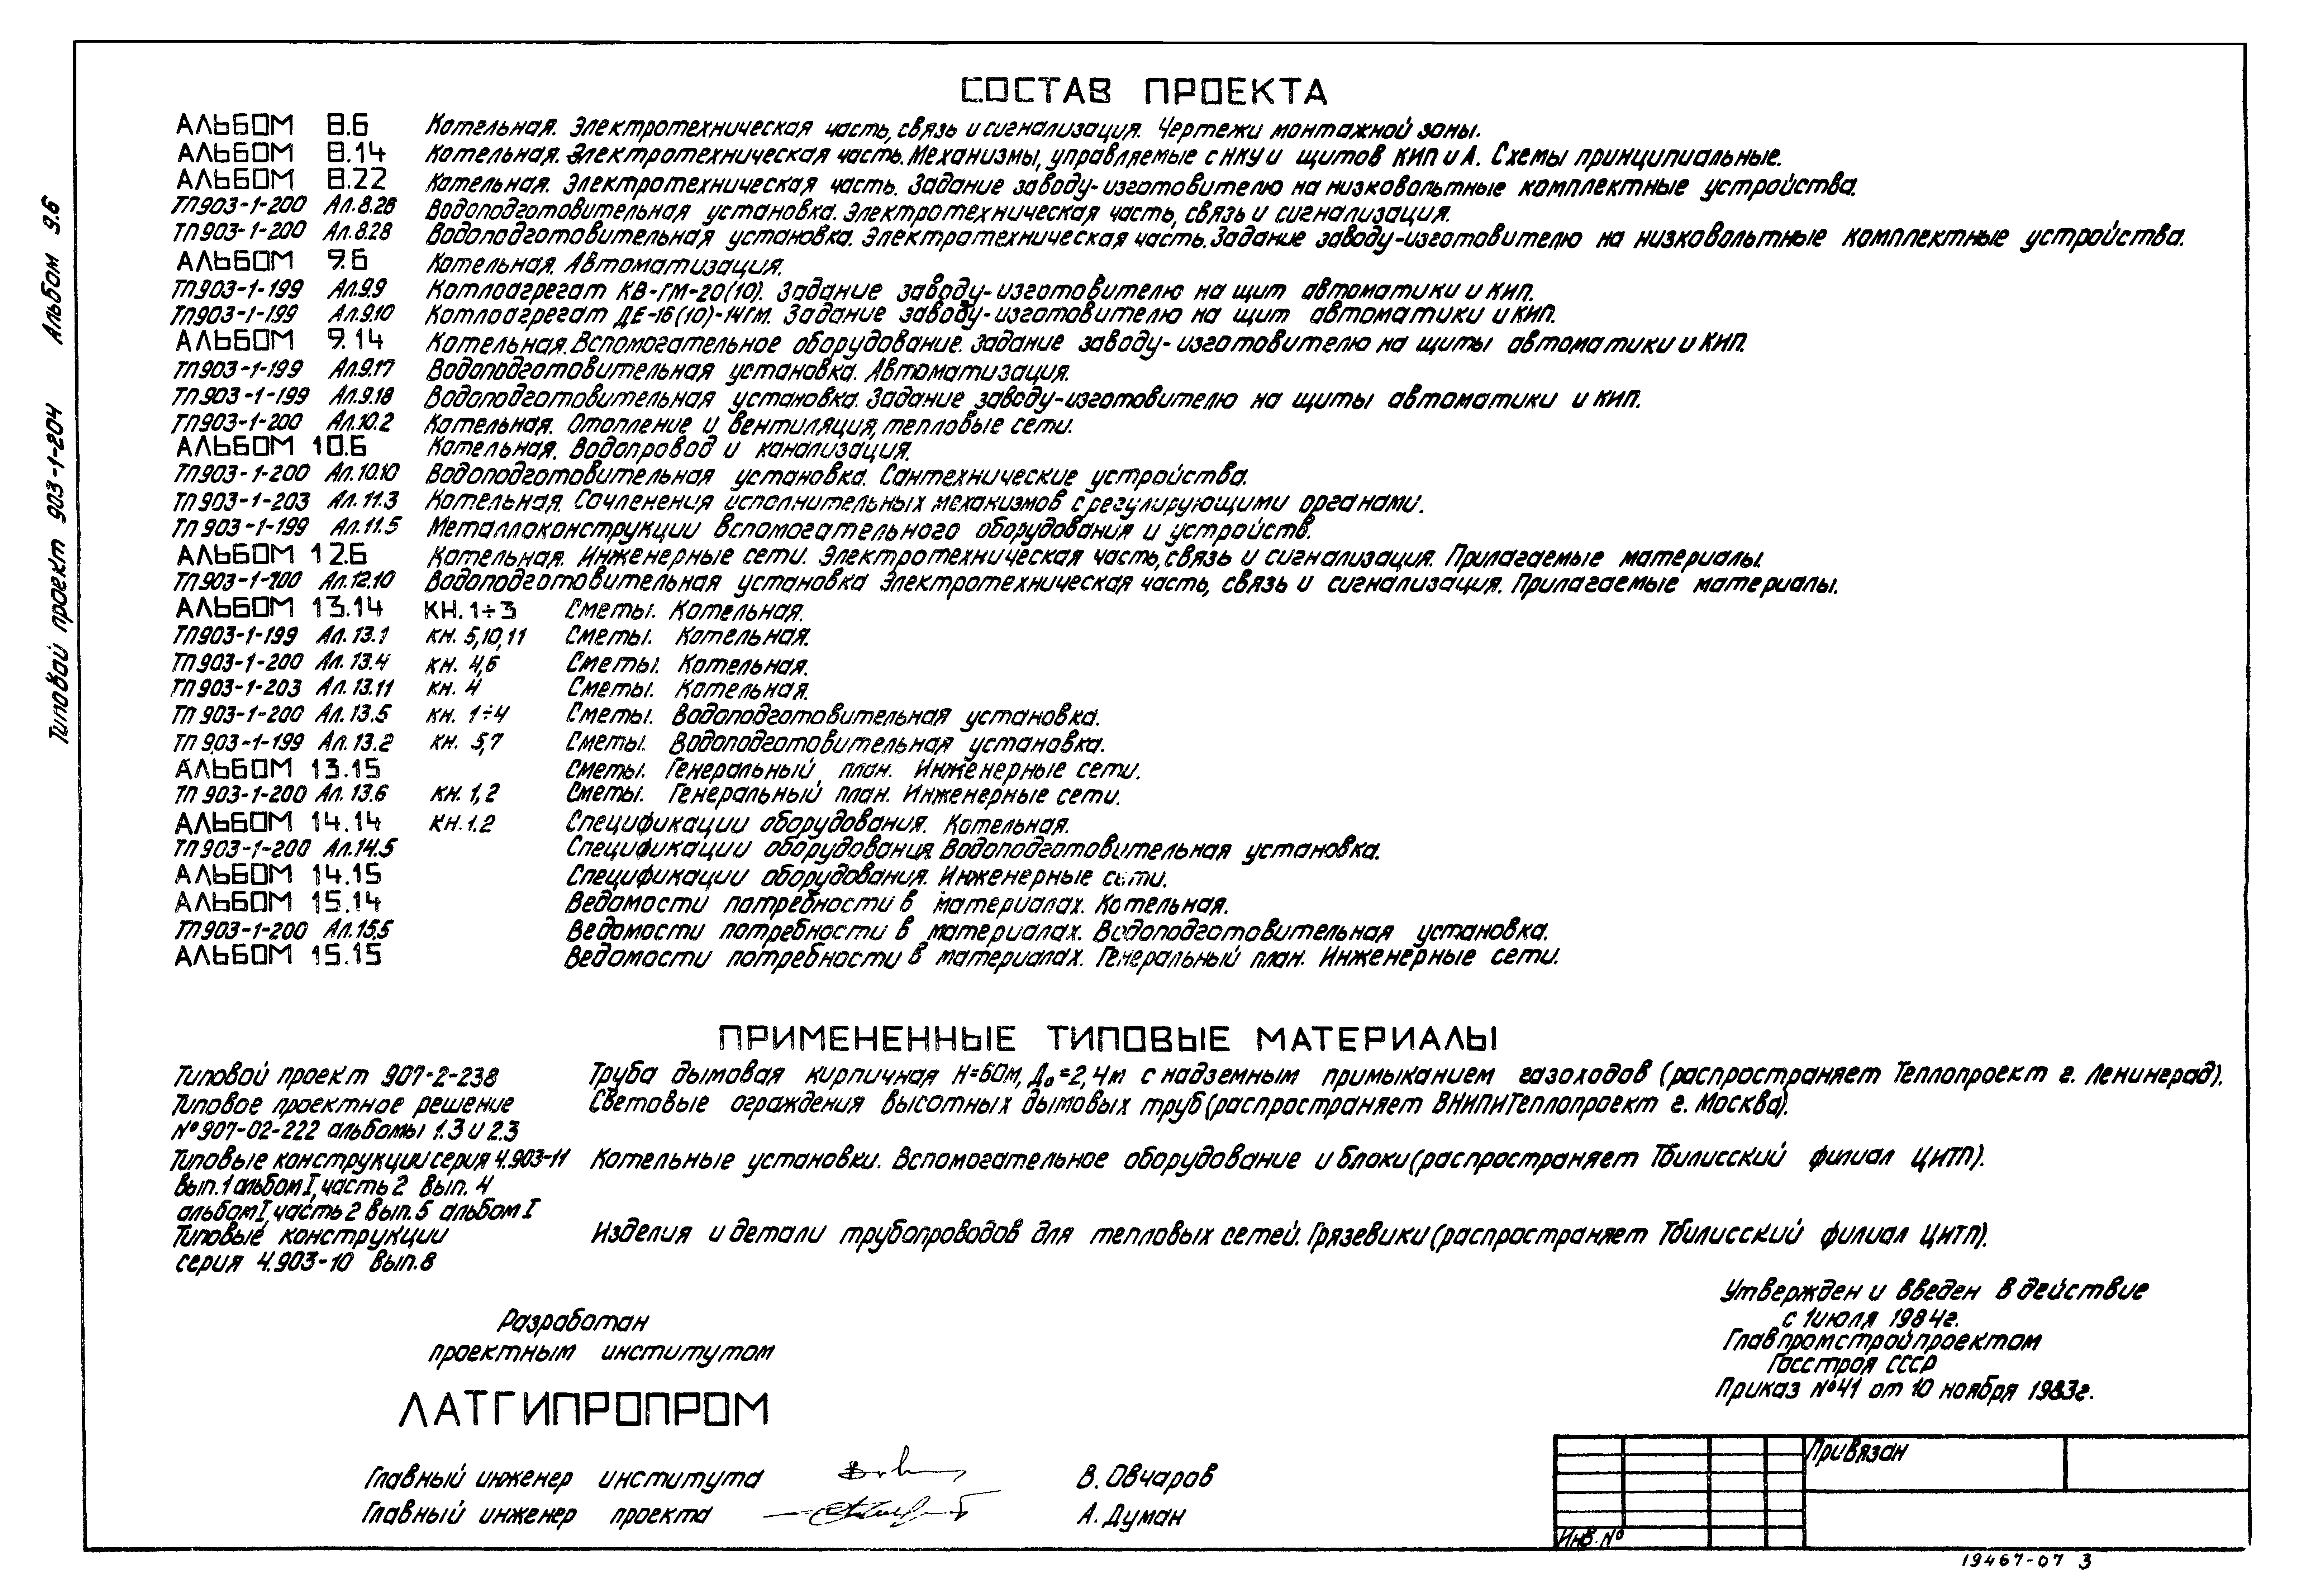 СОСТАВ ПРОЕКТА
АЛЬБОМ 8.6 Котельная. Электротехническая часть, связь и сигнализация. Чертежи монтажной зоны.
АЛЬБОМ 8.14 Котельная. Электротехническая часть. Механизмы, управляемые с НКУ и щитов КИП и А. Схемы принципиальные.
АЛЬБОМ 8.22 Котельная. Электротехническая часть. Задание заводу-изготовителю на низковольтные комплектные устройства.
ТП903-1-200 Ал.8.26 Водоподготовительная установка. Электротехническая часть, связь и сигнализация.
ТП903-1-200 Ал.8.28 Водоподготовительная установка. Электротехническая часть. Задание заводу-изготовителю на низковольтные комплектные устройства.
АЛЬБОМ 9.6 Котельная. Автоматизация.
ТП903-1-199 Ал.9.9 Котлоагрегат КВ-ГМ-20(10). Задание заводу-изготовителю на щит автоматики и КИП.
ТП903-1-199 Ал.9.10 Котлоагрегат ДЕ-16(10)-14ГМ. Задание заводу-изготовителю на щит автоматики и КИП.
АЛЬБОМ 9.14 Котельная. Вспомогательное оборудование. Задание заводу-изготовителю на щиты автоматики и КИП.
ТП903-1-199 Ал.9.17 Водоподготовительная установка. Автоматизация.
ТП903-1-199 Ал.9.18 Водоподготовительная установка. Задание заводу-изготовителю на щиты автоматики и КИП.
ТП903-1-200 Ал.10.2 Котельная. Отопление и вентиляция, тепловые сети.
АЛЬБОМ 10.6 Котельная. Водопровод и канализация.
ТП903-1-200 Ал.10.10 Водоподготовительная установка. Сантехнические устройства.
ТП903-1-203 Ал.11.3 Котельная. Сочленения исполнительных механизмов с регулирующими органами.
ТП903-1-199 Ал.11.5 Металлоконструкции вспомогательного оборудования и устройств.
АЛЬБОМ 12.6 Котельная. Инженерные сети. Электротехническая часть, связь и сигнализация. Прилагаемые материалы.
ТП903-1-200 Ал.12.10 Водоподготовительная установка Электротехническая часть, связь и сигнализация. Прилагаемые материалы.
АЛЬБОМ 13.14 КН. 1÷3 Сметы. Котельная.
ТП903-1-199 Ал.13.1 кн. 5,10,11 Сметы. Котельная.
ТП903-1-200 Ал.13.4 кн. 4,6 Сметы. Котельная.
ТП903-1-203 Ал.13.11 кн. 4 Сметы. Котельная.
ТП903-1-200 Ал.13.5 кн. 1÷4 Сметы. Водоподготовительная установка.
ТП903-1-199 Ал.13.2 кн. 5,7 Сметы. Водоподготовительная установка.
АЛЬБОМ 13.15 Сметы. Генеральный план. Инженерные сети.
ТП903-1-200 Ал.13.6 кн. 1,2 Сметы. Генеральный план. Инженерные сети.
АЛЬБОМ 14.14 кн. 1.2 Спецификации оборудования. Котельная.
ТП903-1-200 Ал.14.5 Спецификации оборудования. Водоподготовительная установка.
АЛЬБОМ 14.15 Спецификации оборудования. Инженерные сети.
АЛЬБОМ 15.14 Ведомости потребности в материалах. Котельная.
ТП903-1-200 Ал.15.5 Ведомости потребности в материалах. Водоподготовительная установка.
АЛЬБОМ 15.15 Ведомости потребности в материалах. Генеральный план. Инженерные сети.
ПРИМЕНЕННЫЕ ТИПОВЫЕ МАТЕРИАЛЫ
Типовой проект 907-2-238 Труба дымовая кирпичная Н=60м, До=2,4м с надземным примыканием газоходов (распространяет Теплопроект г. Ленинград).
Типовое проектное решение Световые ограждения высотных дымовых труб (распространяет ВНИПИТеплопроект г. Москва).
№907-02-222 альбомы 1.3 и 2.3
Типовые конструкции серия 4.903-11 Котельные установки. Вспомогательное оборудование и блоки (распространяет Тбилисский филиал ЦИТП).
Вып.1 альбом I, часть 2 Вып. 4
альбом I, часть 2 Вып. 5 альбом I
Типовые конструкции Изделия и детали трубопроводов для тепловых сетей. Грязевики (распространяет Тбилисский филиал ЦИТП).
серия 4.903-10 Вып.8
Утвержден и введен в действие
с 1 июля 1984г.
Главпромстройпроектом
Госстроя СССР
Приказ №41 от 10 ноября 1983г.
Разработан
проектным институтом
ЛАТГИПРОПРОМ
Главный инженер института В. Овчаров
Главный инженер проекта А. Думан
Привязан
Инв. №
19467-07 3
Типовой проект 903-1-204 Альбом 9.6